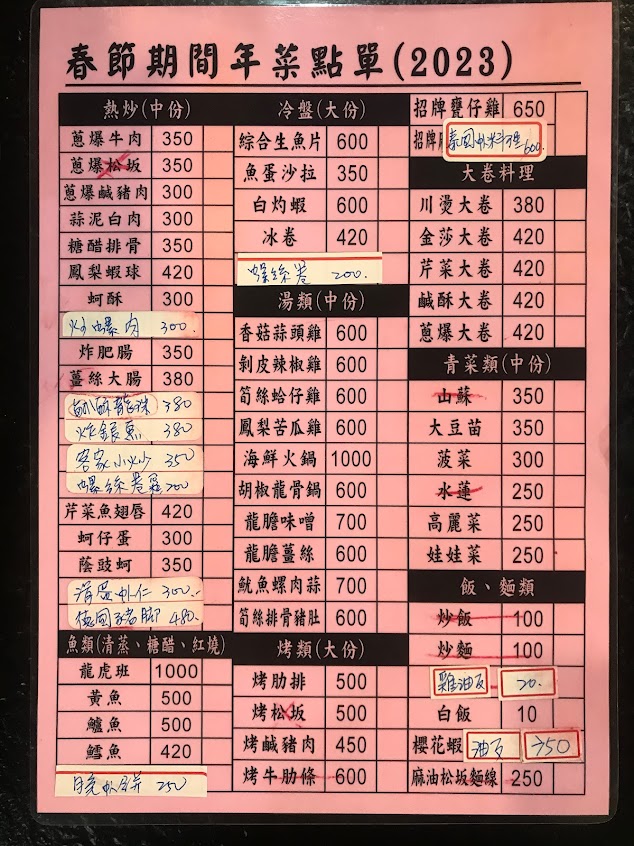 春節期間年菜點單(2023)
熱炒(中份)
蔥爆牛肉 350
蔥爆松坂 350
蔥爆鹹豬肉 300
蒜泥白肉 300
糖醋排骨 350
鳳梨蝦球 420
蚵酥 300
炒螺肉 300.
炸肥腸 350
薑絲大腸 380
鹹酥龍珠 380
炸銀魚 380
客家小炒 350
螺絲卷 200
芹菜魚翅唇 420
蚵仔蛋 300
蔭豉蚵 350
滑蛋虾仁 300.-
德國豬腳 480.
魚類(清蒸、糖醋、紅燒)
龍虎班 1000
黃魚 500
鱸魚 500
鱈魚 420
月亮虾餅 250
冷盤(大份)
綜合生魚片 600
魚蛋沙拉 350
白灼蝦 600
冰卷 420
螺絲卷 200.
湯類(中份)
香菇蒜頭雞 600
剝皮辣椒雞 600
筍絲蛤仔雞 600
鳳梨苦瓜雞 600
海鮮火鍋 1000
胡椒龍骨鍋 600
龍膽味噌 700
龍膽薑絲 600
魷魚螺肉蒜 700
筍絲排骨豬肚 600
烤類(大份)
烤肋排 500
烤松坂 500
烤鹹豬肉 450
烤牛肋條 600
招牌甕仔雞 650
招牌 泰國虾料理 600.
大卷料理
川燙大卷 380
金莎大卷 420
芹菜大卷 420
鹹酥大卷 420
蔥爆大卷 420
青菜類(中份)
山蘇 350
大豆苗 350
菠菜 300
水蓮 250
高麗菜 250
娃娃菜 250
飯、麵類
炒飯 100
炒麵 100
雞油飯 20.
白飯 10
櫻花蝦 油飯 350
麻油松坂麵線 250